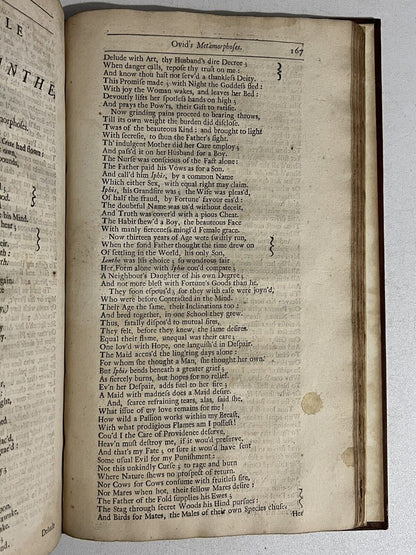 LE
INTHE,
morphoses.
Crete had flown:
ounds,
his Mind.
w'd,
im,
y'd,
woke,
spoke,
Delude
Ovid's Metamorphoses. 167
Delude with Art, thy Husband's dire Decree;
When danger calls, repose thy trust on me:
And know thou hast not serv'd a thankless Deity.
This Promise made; with Night the Goddess fled:
With joy the Woman wakes, and leaves her Bed:
Devoutly lifts her spotless hands on high;
And prays the Pow'rs, their Gift to ratifie.
Now grinding pains proceed to bearing throws,
Till its own weight the burden did disclose.
'Twas of the beauteous Kind: and brought to light
With secresie, to shun the Father's sight.
Th' indulgent Mother did her Care employ;
And pass'd it on her Husband for a Boy.
The Nurse was conscious of the Fact alone:
The Father paid his Vows as for a Son.
And call'd him Iphis, by a common Name
Which either Sex, with equal right may claim.
Iphis, his Grandsire was; the Wife was pleas'd,
Of half the fraud, by Fortune's favour eas'd:
The doubtful Name was us'd without deceit,
And Truth was cover'd with a pious Cheat.
The Habit shew'd a Boy, the beauteous Face
With manly fierceness mingl'd Female grace.
Now thirteen years of Age were swiftly run,
When the fond Father thought the time drew on
Of settling in the World, his only Son,
Ianthe was his choice; so wondrous fair
Her Form alone with Iphis cou'd compare;
A Neighbour's Daughter of his own Degree;
And not more blest with Fortune's Goods than he.
They soon espous'd; for they with ease were joyn'd,
Who were before Contracted in the Mind.
Their Age the same, their Inclinations too:
And bred together, in one School they grew.
Thus, fatally dispos'd to mutual fires,
They felt, before they knew, the same desires.
Equal their flame, unequal was their care;
One lov'd with Hope, one languish'd in Despair.
The Maid accus'd the ling'ring days alone:
For whom she thought a Man, she thought her own.
But Iphis bends beneath a greater grief;
As fiercely burns, but hopes for no relief.
Ev'n her Despair, adds fuel to her fire;
A Maid with madness does a Maid desire.
And, scarce refraining tears, alas, said she,
What issue of my love remains for me!
How wild a Passion works within my Breast,
With what prodigious Flames am I possest!
Cou'd I the Care of Providence deserve,
Heav'n must destroy me, if it wou'd preserve,
And that's my Fate; or sure it wou'd have sent
Some usual Evil for my Punishment:
Not this unkindly Curse; to rage and burn
Where Nature shews no prospect of return.
Nor Cows for Cows consume with fruitless fire,
Nor Mares when hot, their fellow Mares desire;
The Father of the Fold supplies his Ewes;
The Stag through secret Woods his Hind pursues:
And Birds for Mates, the Males of their own Species chuse
Her